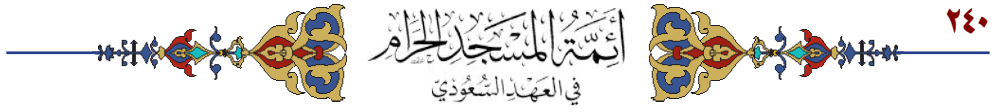 ٢٤٠
أَئِمَّةُ الْمَسْجِدِ الْحَرَامِ
فِي الْعَهْدِ السُّعُودِيّ